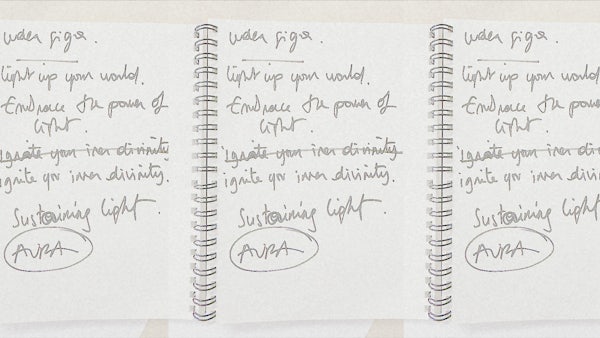 light up your world.
Embrace the power of
light.
ignite your inner divinity
ignite yor inner divinity.
Sustaining light.
AURA
light up your world.
Embrace the power of
light.
ignite your inner divinity.
ignite yor inner divinity.
Sustaining light.
AURA
light up your world
Embrace the power
light.
ignite your inner
ignite yor inner
Sustaining light
AURA